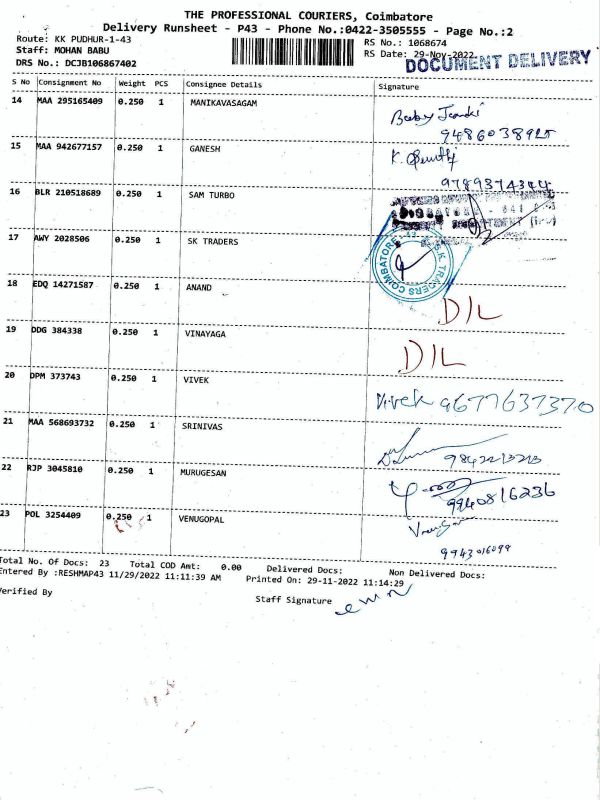 THE PROFESSIONAL COURIERS, Coimbatore
Delivery Runsheet - P43 - Phone No.:0422-3505555 - Page No.:2
Route: KK PUDHUR-1-43
RS No.: 1068674
Staff: MOHAN BABU
RS Date: 29-Nov-2022
DRS No.: DCJB106867402
DOCUMENT DELIVERY
S No Consignment No Weight PCS Consignee Details Signature
14 MAA 295165409 0.250 1 MANIKAVASAGAM
15 MAA 942677157 0.250 1 GANESH
9789374344
16 BLR 210518689 0.250 1 SAM TURBO
17 AWY 2028506 0.250 1 SK TRADERS
S.K. TRADERS COIMBATORE - 43
18 EDQ 14271587 0.250 1 ANAND D/L
19 DDG 384338 0.250 1 VINAYAGA D/L
20 DPM 373743 0.250 1 VIVEK Vivek 9677637370
21 MAA 568693732 0.250 1 SRINIVAS
9842213213
22 RJP 3045810 0.250 1 MURUGESAN
9940816236
23 POL 3254409 0.250 1 VENUGOPAL
9943016099
Total No. Of Docs: 23 Total COD Amt: 0.00 Delivered Docs: Non Delivered Docs:
Entered By :RESHMAP43 11/29/2022 11:11:39 AM Printed On: 29-11-2022 11:14:29
Verified By
Staff Signature